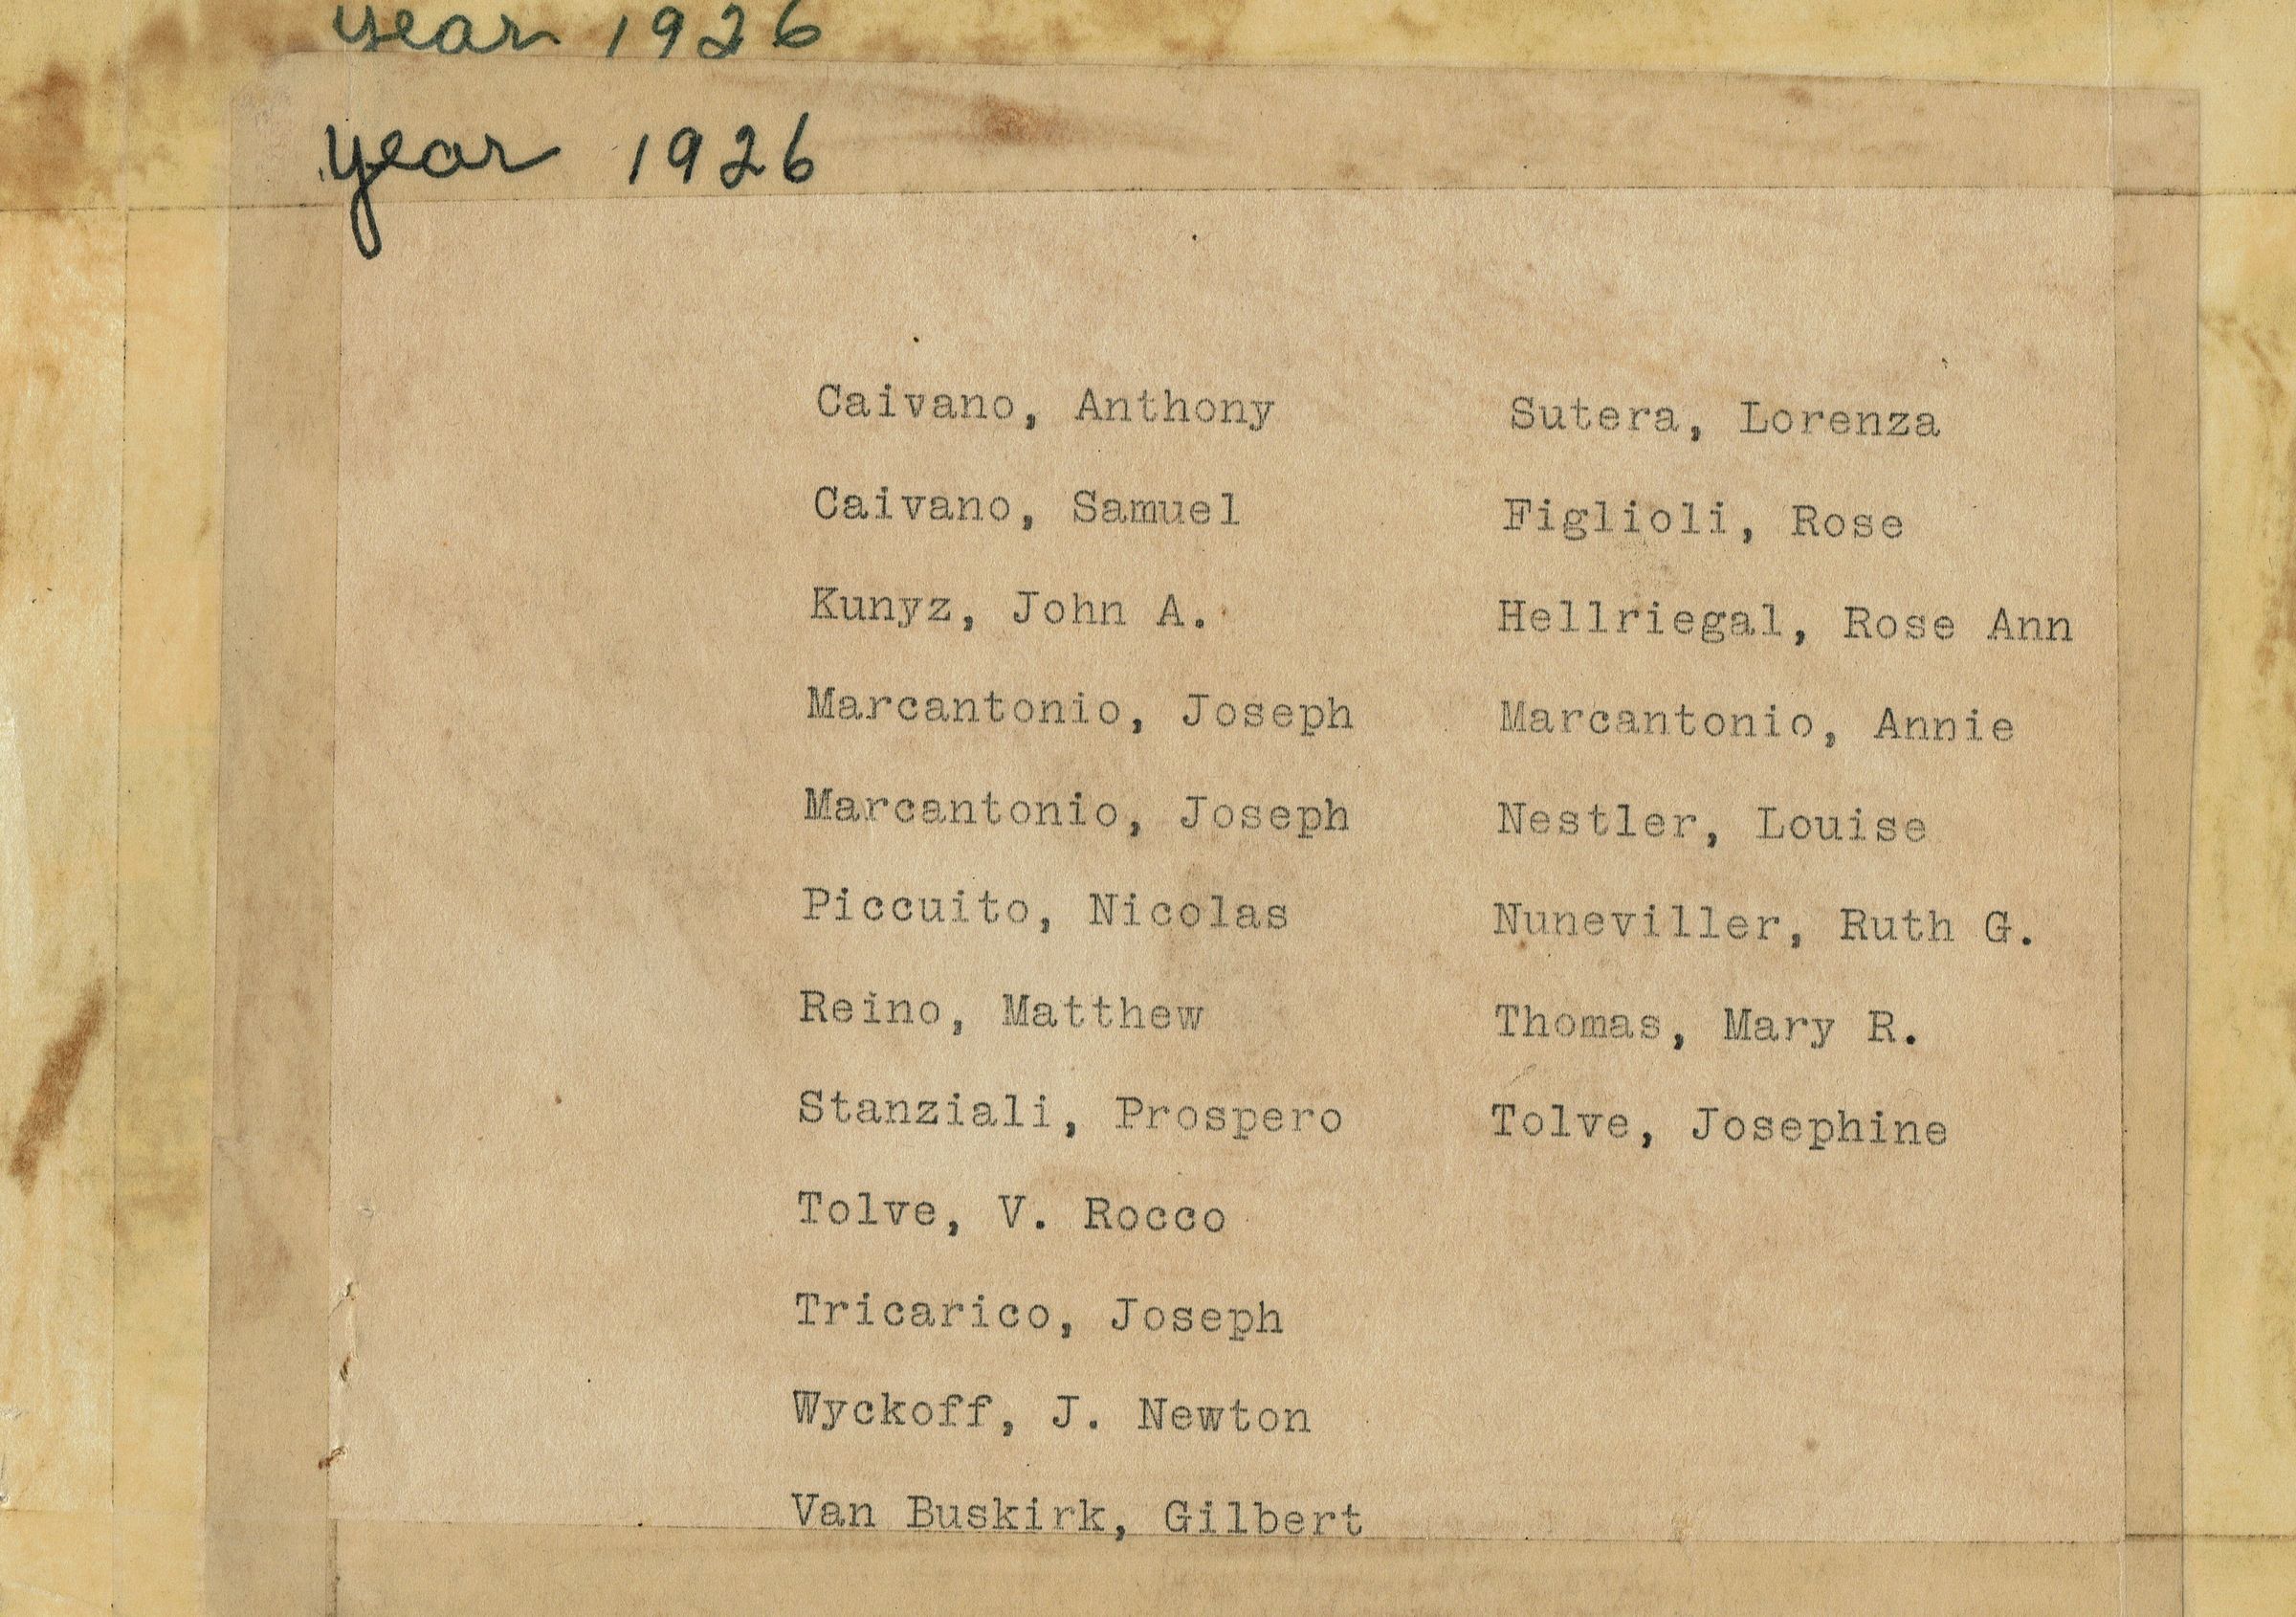 year 1926
year 1926
Caivano, Anthony
Caivano, Samuel
Kunyz, John A.
Marcantonio, Joseph
Marcantonio, Joseph
Piccuito, Nicolas
Reino, Matthew
Stanziali, Prospero
Tolve, V. Rocco
Tricarico, Joseph
Wyckoff, J. Newton
Van Buskirk, Gilbert
Sutera, Lorenza
Figlioli, Rose
Hellriegal, Rose Ann
Marcantonio, Annie
Nestler, Louise
Nuneviller, Ruth G.
Thomas, Mary R.
Tolve, Josephine